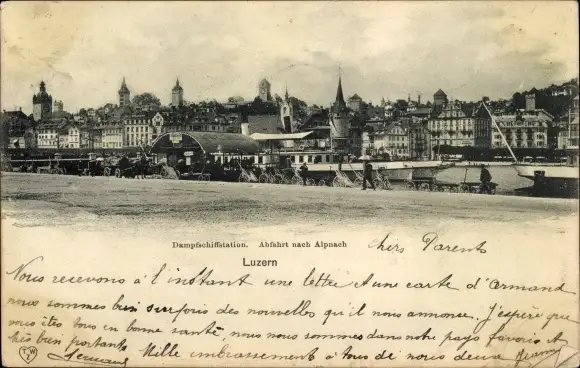 Dampfschiffstation. Abfahrt nach Alpnach
Luzern
Chers Parents
Nous recevons à l'instant une lettre et une carte d'Armand
nous sommes bien surpris des nouvelles qu'il nous annonce. J'espère que
vous êtes tous en bonne santé, nous nous sommes dans notre pays favoris et
très bien portants. Mille embrassement à tous de nous deux
Germaine